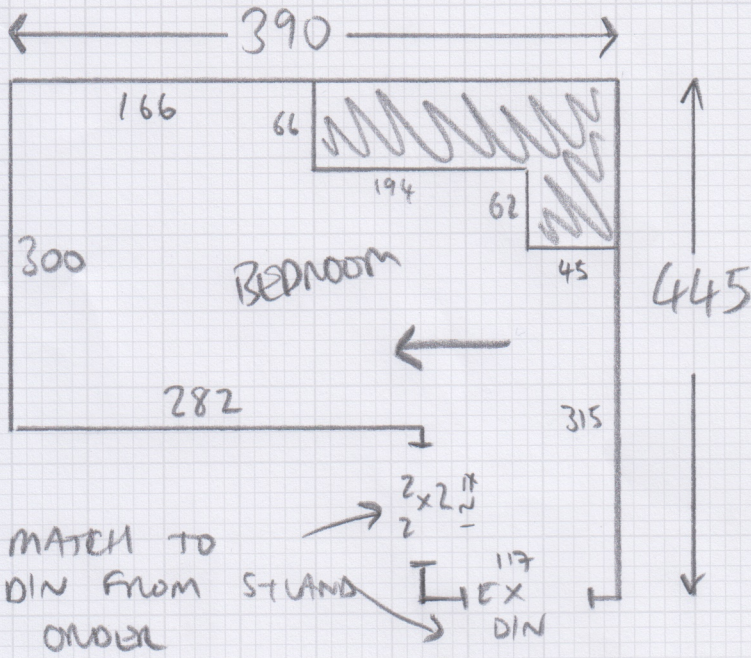 390
166
66
194
62
300
45
BEDROOM
445
282
315
2 x 2
2
MATCH TO
DIN FROM
ORDER
117
EX
DIN